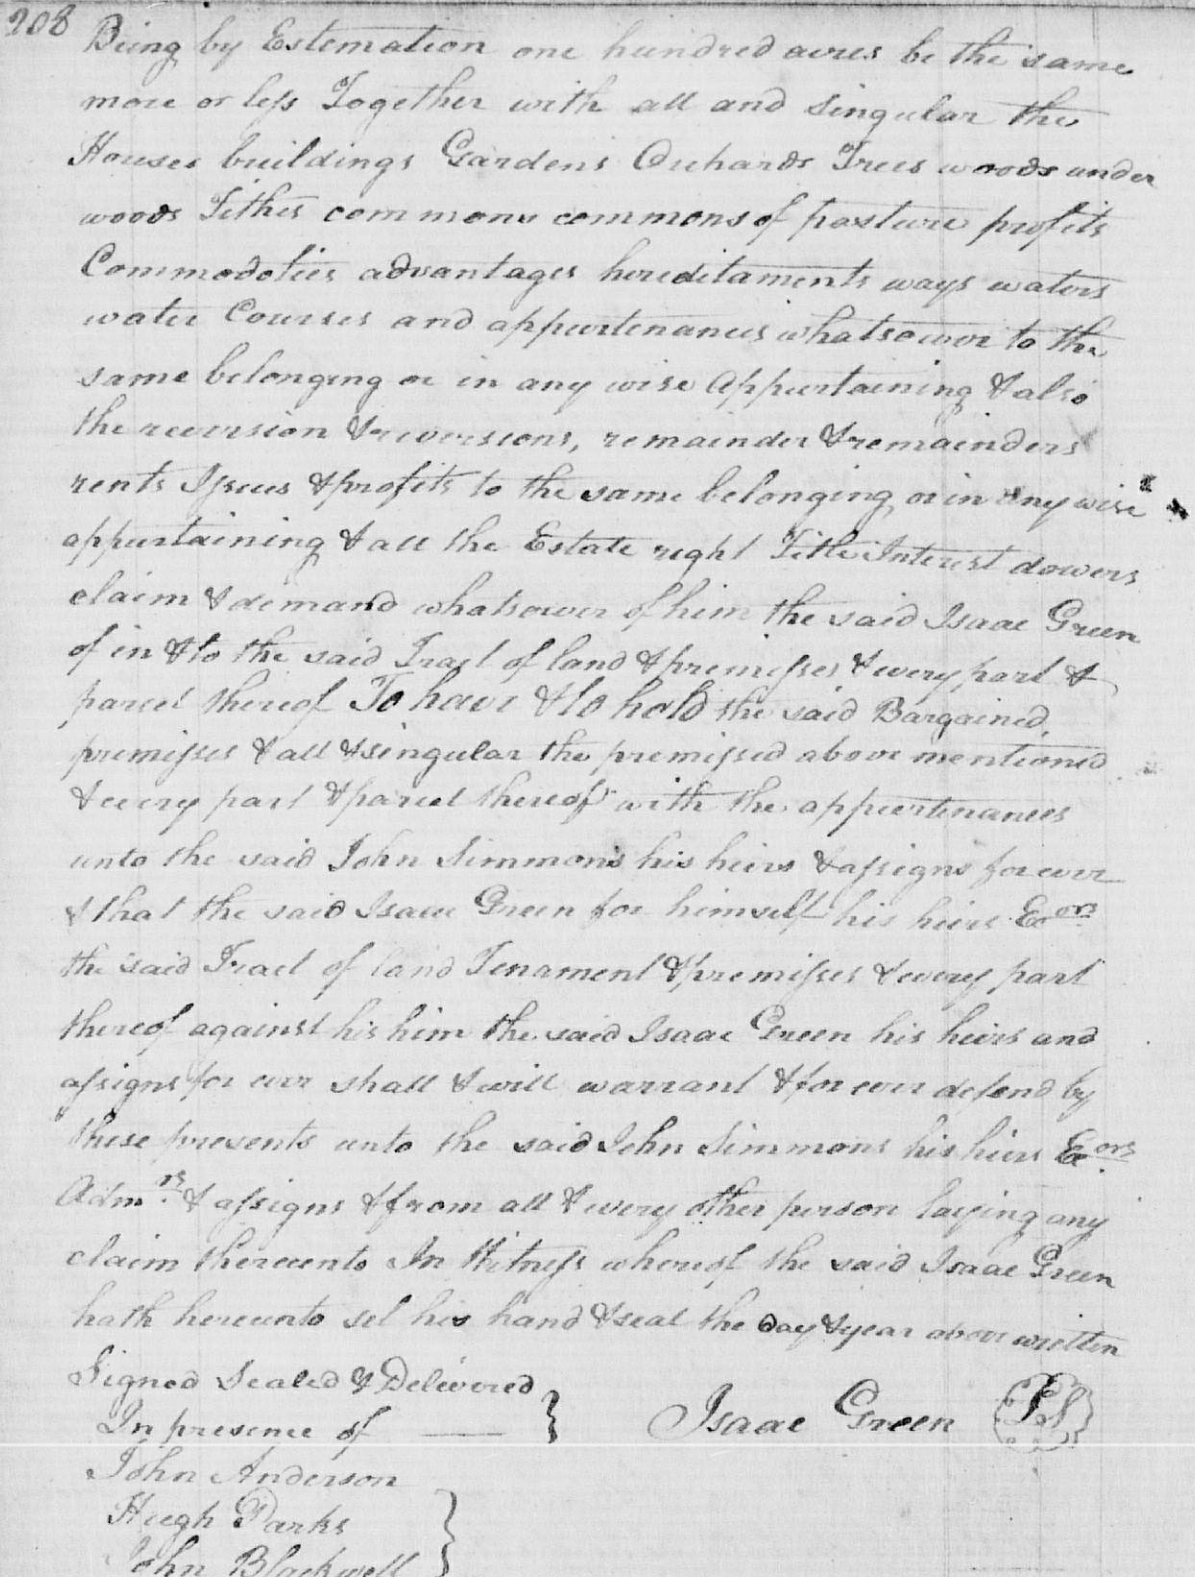 208
Being by Estemation one hundred acres be the same
more or less Together with all and Singular the
Houses buildings Gardens Orchards Trees woods under
woods Tithes commons commons of pasture profits
Commodoties advantages hereditaments ways waters
water Courses and appurtenances whatsoever to the
same belonging or in any wise Appurtaining & also
the reversion & reversions, remainder & remainders
rents Issues & profits to the same belonging or in any wise
appurtaining & all the Estate right Title Interest dowers
claim & demand whatsower of him the said Isaac Green
of in & to the said Tract of land & premisses & every part &
parcel thereof To have & to hold the said Bargained
premisses & all & singular the premissed above mentioned
& every part & parcel thereof with the appurtenances
unto the said John Simmons his heirs & assigns for ever
& that the said Isaac Green for himself his heirs Exors
the said Tract of land Tenament & premisses & every part
thereof against his him the said Isaac Green his heirs and
assigns for ever shall & will warrant & for ever defend by
these presents unto the said John Simmons his heirs Exors
Admrs & assigns & from all & every other person laying any
claim thereunto In Witness whereof the said Isaac Green
hath hereunto set his hand & seal the day & year above written
Signed Sealed & Delivered
In presence of — } Isaac Green LS
John Anderson
Hugh Parks
John Blackwell }